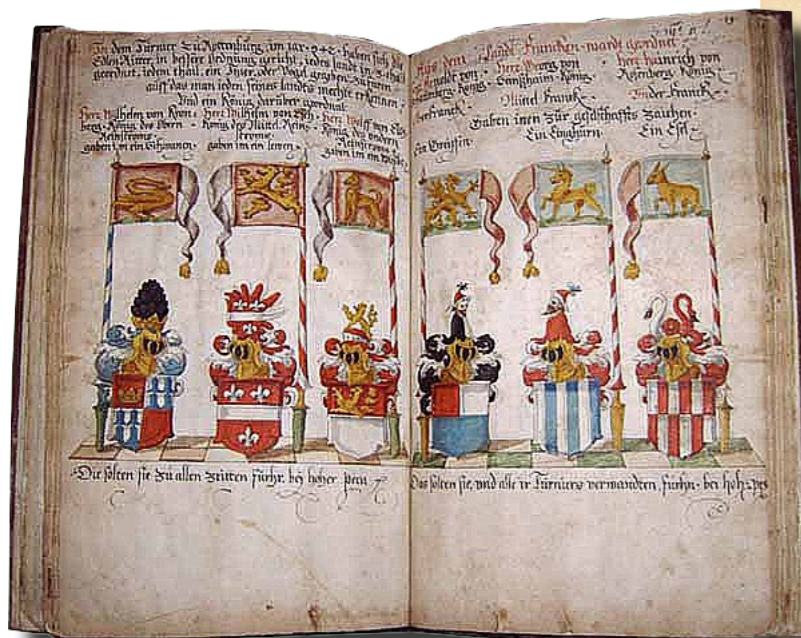 In dem Turnier zu Rottenburg, im iar. 942. haben sich die
Edlen Ritter, in bessere Ordnung gericht, iedes landt in 3. thail
geordnet, iedem thail, ein Thier, oder Vogel gegeben zufüren
auff das man ieden seines landts mechte erkennen.
Und ein König darüber geordnat.
Herr Wilhelm von Kron-
berg. König des Obern
Reinstroms.
gaben im ein
Herr Wilhelm von
König des Mittel. Reins-
stroms.
gaben im ein lewen.
Herr Wolff von
König des undern
Reinstroms.
gaben im ein
Die solten sie zu allen zeitten fürhr. bey hoher pein
19
Aus dem Landt Francken. wardt geordnet
von
König.
Herr Georg von
Seinßhaim. König.
Mittel Franck
Herr Hainrich von
Rosenberg. König.
Under Franck
Gaben inen zur geselschaffts zaichen.
Ein Greiffen.
Ein Einghürn.
Ein Esel.
Das solten sie, und alle ir Turniers verwandten, fürhn. bei hoh. pen